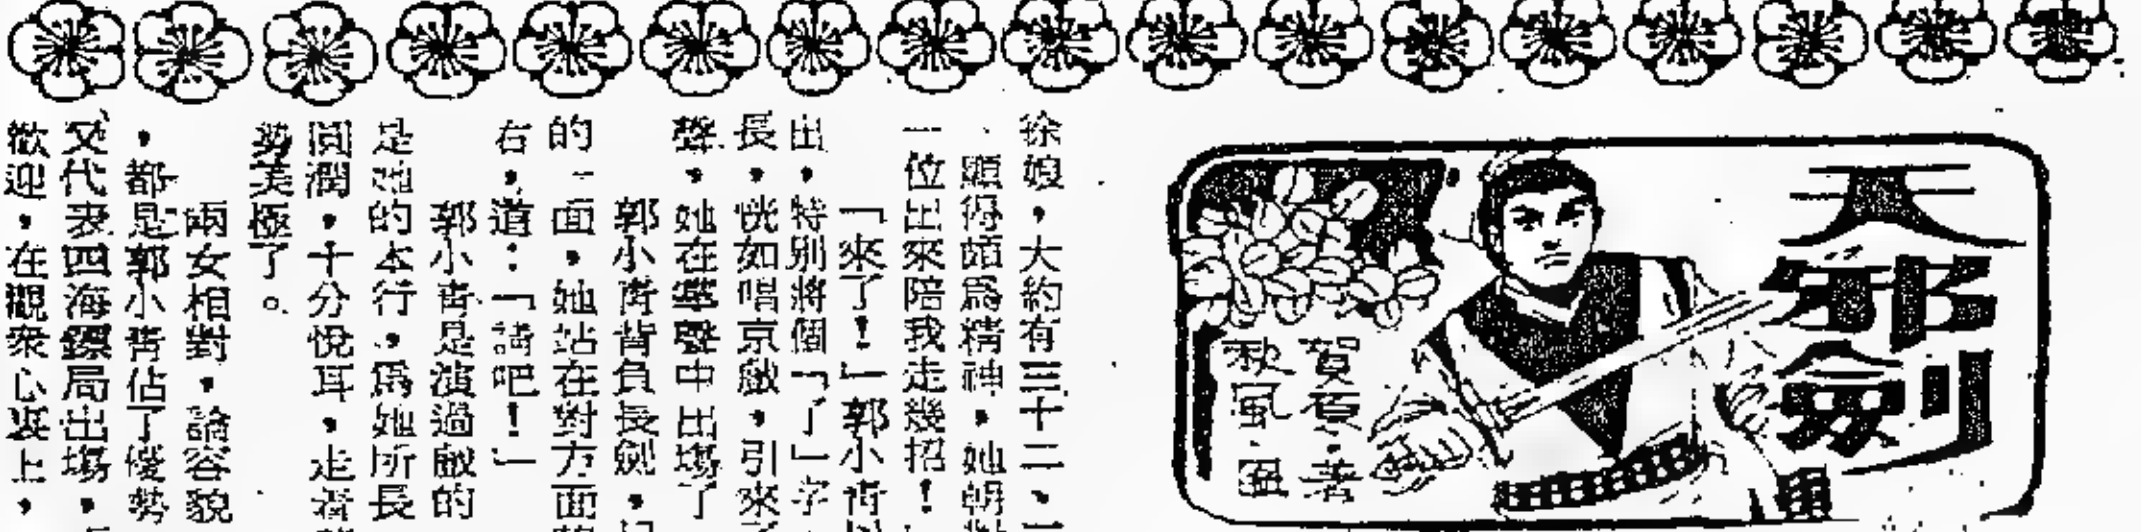 天邪劍
賀夏·著
秋風·圖
徐娘，大約有三十二、
、顯得頗爲精神，她朝對
一位出來陪我走幾招！
「來了！」郭小青
出，特别將個「了」字
長，恍如唱京戲，引來了
聲，她在掌聲中出場了
郭小青背負長劍，
的一面，她站在對方面
右，道：「請吧！」
郭小青是演過戲的
是她的本行，爲她所長
圓潤，十分悅耳，走
勢美極了。
兩女相對，論容貌
，都是郭小青佔了優勢
又代表四海鏢局出場，
歡迎，在觀衆心裏上，